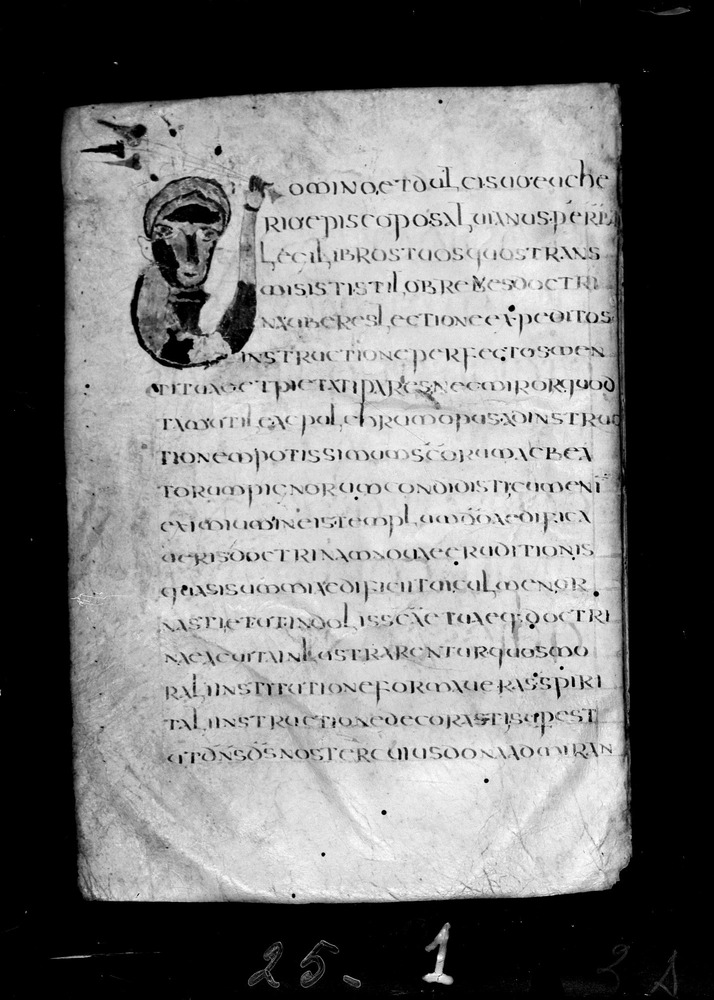 OMINO ET DULCI SUO EUCHE
RIO EPISCOPO SALUIANUS PER
LEGI LIBROS TUOS QUOS TRANS
MISISTI STILO BREUES DOCTRI
NA UBERES LECTIONE EXPEDITOS
INSTRUCTIONE PERFECTOS MEN
TI TUAE ET PIETATI PARES NEC MIROR QUOD
TAM UTILE AC PULCHRUM OPUS AD INSTRUC
TIONEM POTISSIMUM SCŌRUM AC BEA
TORUM PIGNORUM CONDIDISTI CUM ENI
EXIMIUM IN EIS TEMPLUM DŌ AEDIFICA
UERIS DOCTRINAM NOUAE ERUDITIONIS
QUASI SUMMI AEDIFICII TUI CULMEN OR
NASTI ET UT INDOLIS SCĀE TUAEQ. DOCTRI
NAE AC UITA INLUSTRARENTUR QUOS MO
RALI INSTITUTIONE FORMAUERAS SPIRI
TALI INSTRUCTIONE DECORASTI SUPEST
UT DN̄S DS̄ NOSTER CUIUS DONA ADMIRAN
25. 1